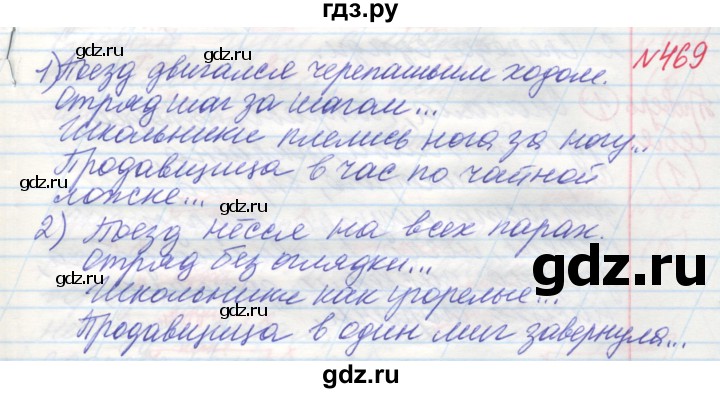 гдз.ру
№469
1) Поезд двигался черепашьим ходом.
Отряд шаг за шагом...
Школьники плелись нога за ногу...
Продавщица в час по чайной
ложке...
2) Поезд нёсся на всех парах.
Отряд без оглядки...
Школьники как угорелые...
Продавщица в один миг завернула...
gdz.ru
gdz.ru
gdz.ru
gdz.ru
gdz.ru
gdz.ru
gdz.ru
gdz.ru
gdz.ru
gdz.ru